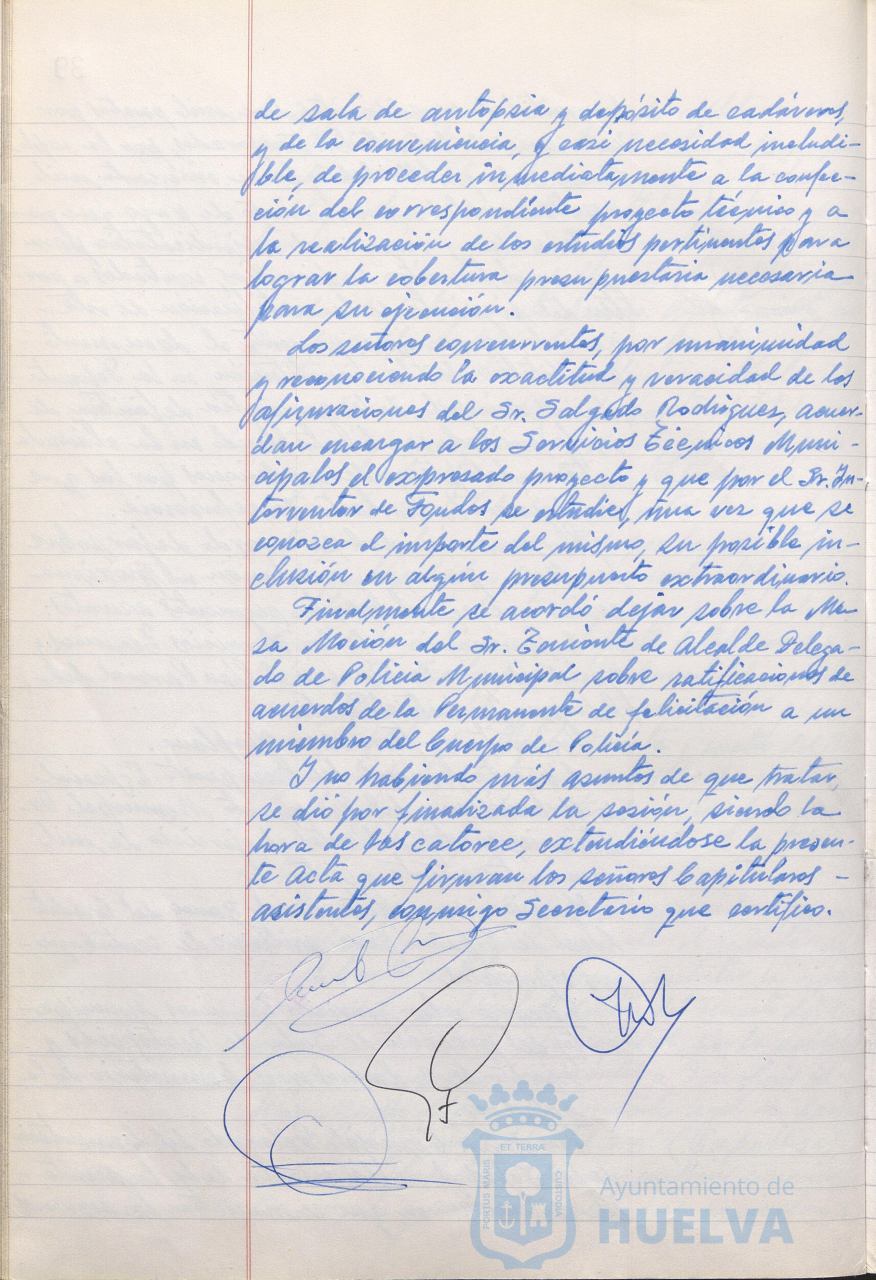 de sala de autopsia y depósito de cadáveres,
y de la conveniencia, y casi necesidad includi-
ble, de proceder inmediatamente a la confec-
ción del correspondiente proyecto técnico y a
la realización de los estudios pertinentes para
lograr la cobertura presupuestaria necesaria
para su ejecución.
Los señores concurrentes, por unanimidad
y reconociendo la exactitud y veracidad de las
afirmaciones del Sr. Salgado Rodríguez, acuer-
dan encargar a los Servicios Técnicos Muni-
cipales el expresado proyecto y que por el Sr. In-
terventor de Fondos se estudie, una vez que se
conozca el importe del mismo, su posible in-
clusión en algún presupuesto extraordinario.
Finalmente se acordó dejar sobre la Me-
sa Moción del Sr. Teniente de Alcalde Delega-
do de Policía Municipal sobre ratificaciones de
acuerdos de la Permanente de felicitación a un
miembro del Cuerpo de Policía.
Y no habiendo más asuntos de que tratar,
se dió por finalizada la sesión, siendo la
hora de las catorce, extendiéndose la presen-
te Acta que firman los señores Capitulares -
asistentes, conmigo Secretario que certifico.
ET TERRÆ
PORTUS MARIS
CUSTODIA
Ayuntamiento de
HUELVA